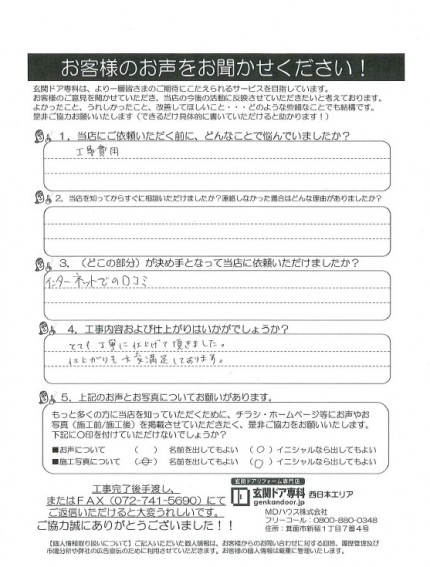 お客様のお声をお聞かせください！
玄関ドア専科は、より一層皆さまのご期待にこたえられるサービスを目指しています。
お客様のご意見を聞かせていただき、当店の今後の活動に反映させていただきたいと考えております。
よかったこと、うれしかったこと、改善してほしいこと・・・どのような些細なことでも結構です。
是非ご協力お願いいたします（できるだけ具体的に書いていただけると助かります！）
1．当店にご依頼いただく前に、どんなことで悩んでいましたか？
工事費用
2．当店を知ってからすぐに相談いただけましたか？連絡しなかった場合はどんな理由がありましたか？
3．（どこの部分）が決め手となって当店に依頼いただけましたか？
インターネットでの口コミ
4．工事内容および仕上がりはいかがでしょうか？
とても丁寧に仕上げて頂きました。
仕上がりも大変満足しております。
5．上記のお声とお写真についてお願いがあります。
もっと多くの方に当店を知っていただくために、チラシ・ホームページ等にお声やお
写真（施工前/施工後）を掲載させていただきたく、是非ご協力をお願いいたします。
下記に〇印を付けていただけないでしょうか？
■お声について （ ） 名前を出してもよい （〇）イニシャルなら出してもよい
■施工写真について （ ） 名前を出してもよい （〇）イニシャルなら出してもよい
工事完了後手渡し、
またはFAX（072-741-5690）にて
ご返信いただけると大変うれしいです。
ご協力誠にありがとうございました！！
玄関ドアリフォーム専門店
玄関ドア専科 西日本エリア
genkandoor.jp
MDハウス株式会社
フリーコール：0800-880-0348
住所：箕面市新稲1丁目7番4号
【個人情報取り扱いについて】ご記入いただいた個人情報は、お客様からのお問い合わせに対する回答、履歴管理及び
市場分析や弊社の広告宣伝のために利用させていただきます。お客様の個人情報は厳重に管理いたします。